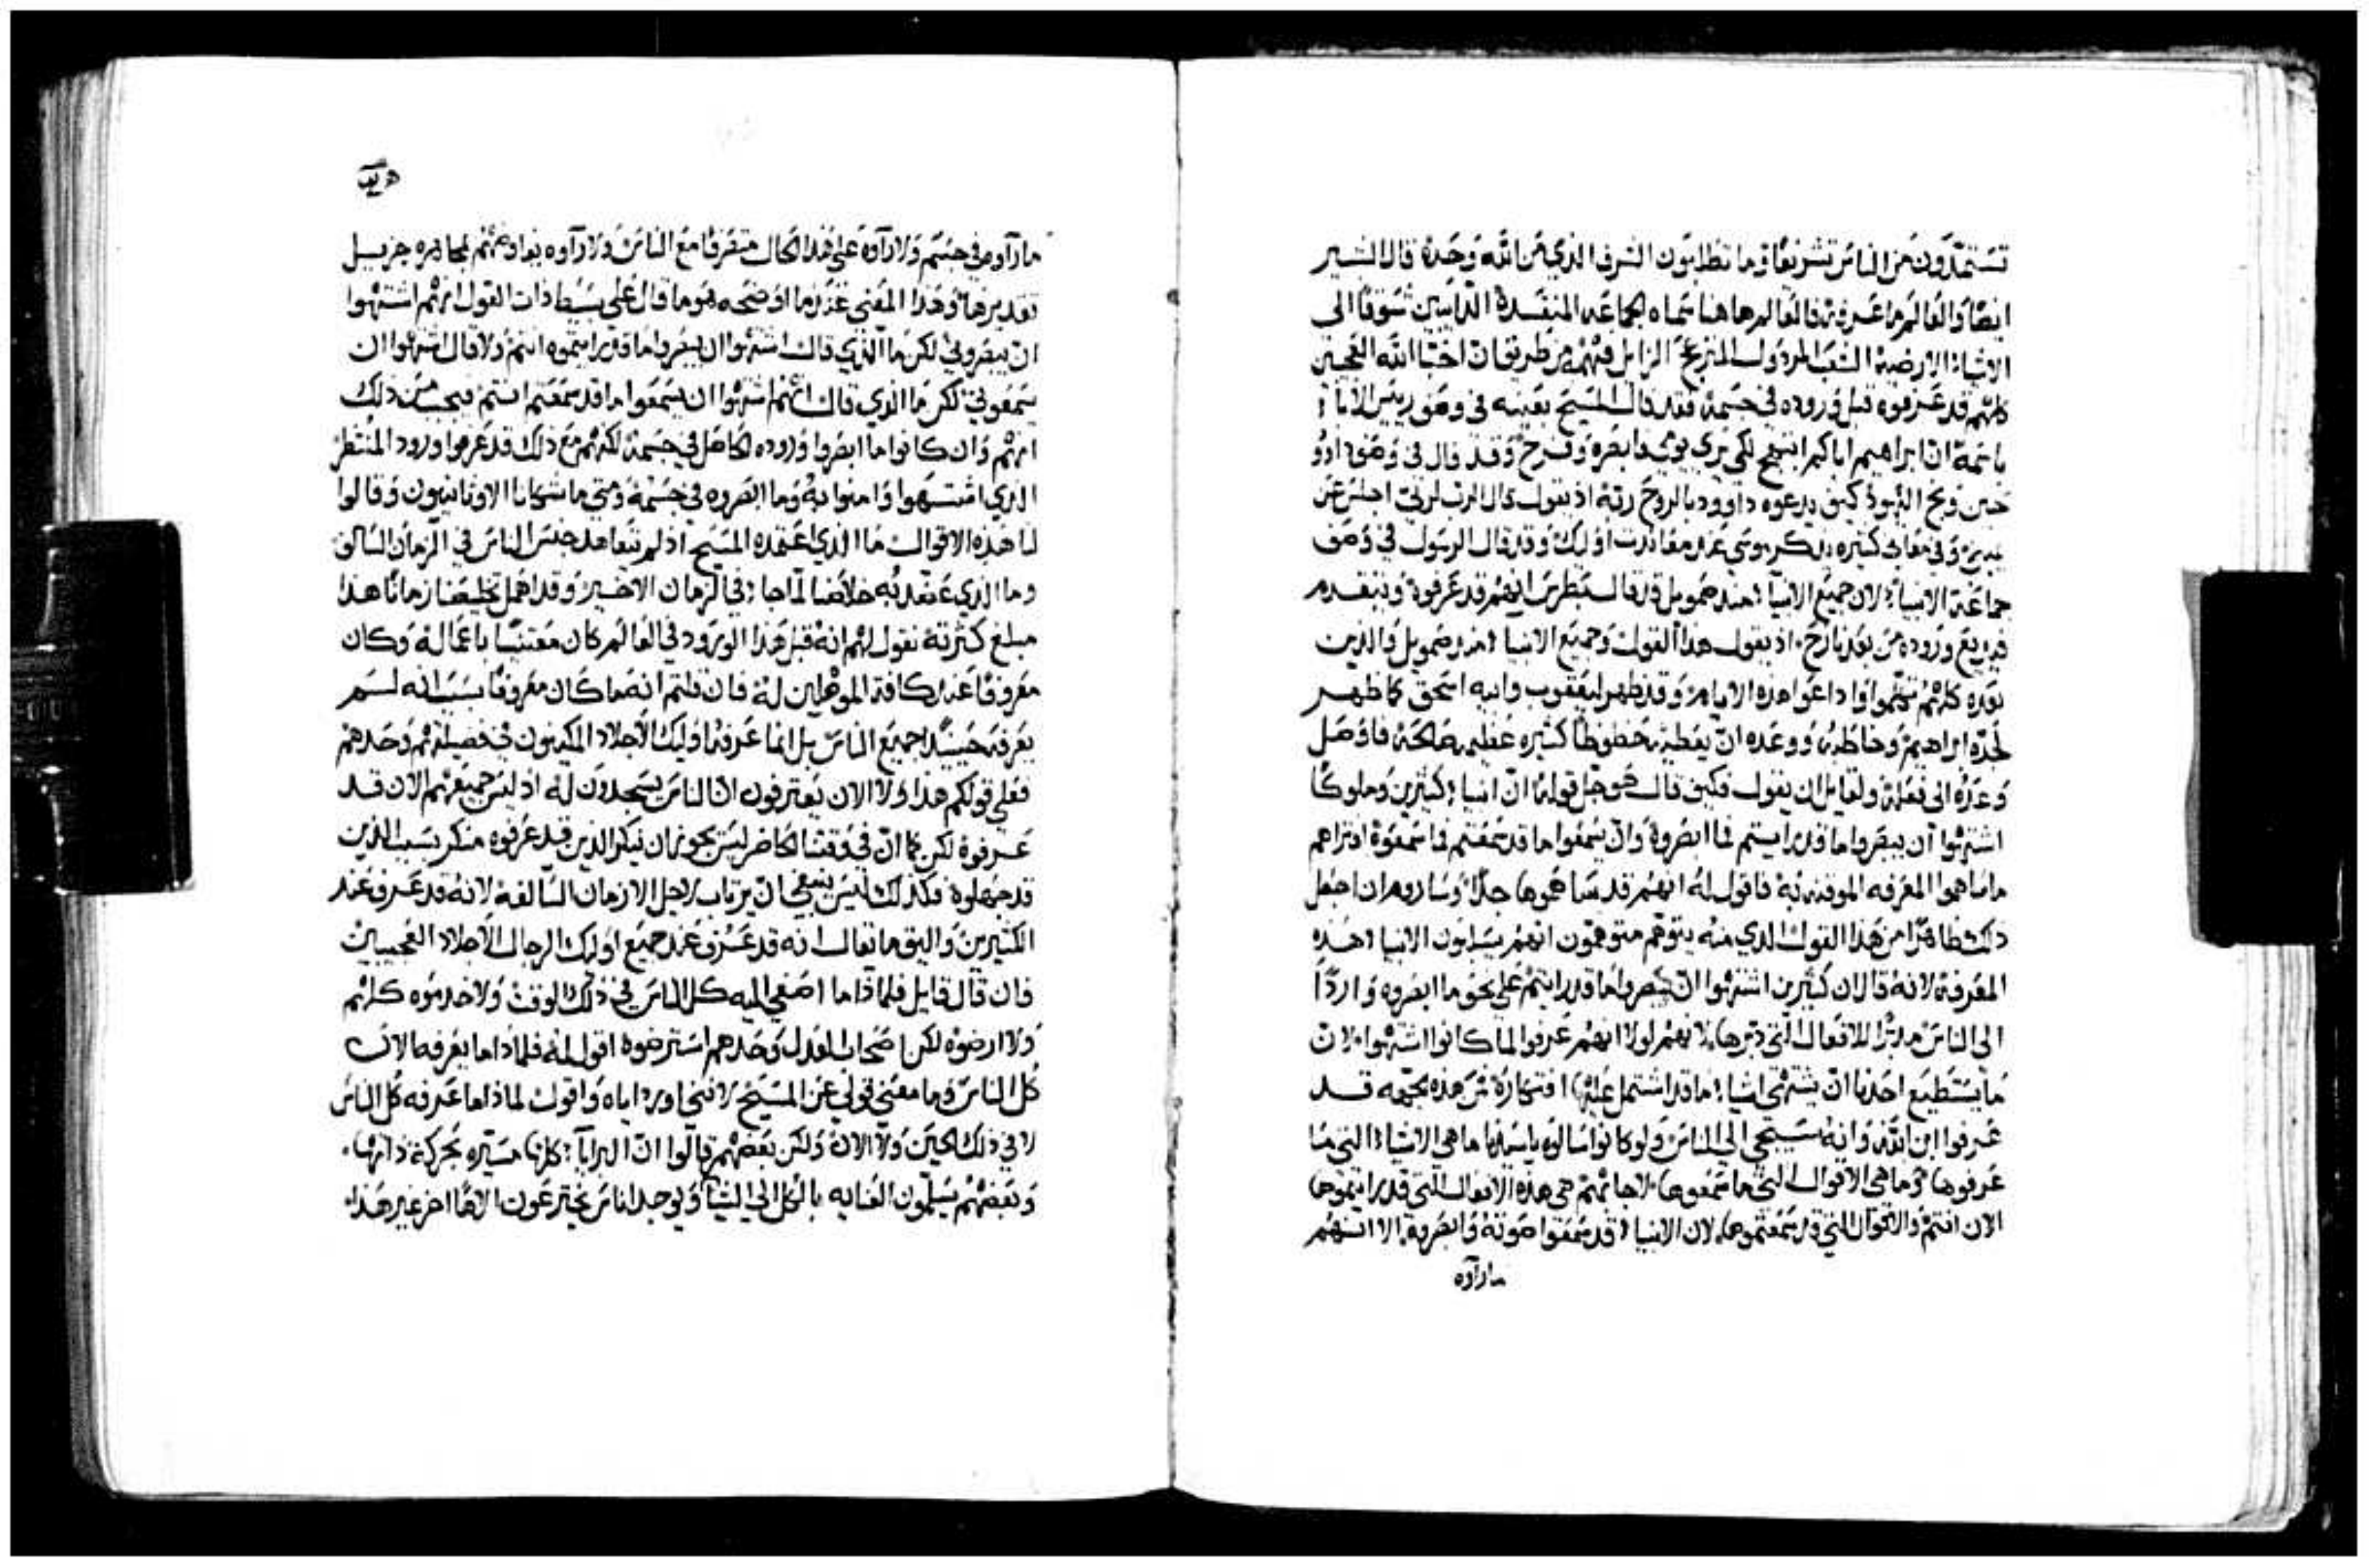 تستمدون من الناس تشريفًا وما تطلبون الشرف الذي من الله وحده قال البشير
ايضًا والعالم ما عرفه فالعالم هاهنا سماه الجماعه المفسدة الدايبين شوقًا الى
الاشياء الارضيه الشعب المرذول المنزعج الزايل فهمه من طريق ان احبا الله العجيبين
كلهم قد عرفوه قبل وروده في جسمه فقد قال المسيح بعينه في وصف رييس الابا
باسمه ان ابراهيم اباكم ابتهج لكي يري يومي فابصره وفرح وقد قال في وصف داوود
حين وبخ اليهود كيف يدعوه داوود بالروح ربه اذ يقول قال الرب لربي اجلس عن
يميني وفي معاني كثيره يذكر موسي عند مفاوضته اوليك وقد قال الرسول في وصف
جماعة الانبياء لان جميع الانبياء منذ صمويل قد قال بطرس انهم قد عرفوه وتتقدم
فيذيع وروده من بعد نازح اذ يقول هذا القول وجميع الانبيا منذ صمويل والذين
بعده كلهم تكلموا واذاعوا هذه الايام وقد ظهر ليعقوب وابيه اسحق كما ظهر
لجده ابراهيم وخاطبه ووعده ان يعطيه حظوظًا كثيره عظيمه صالحه فاوصل
وعده الى فعله ولقايل ان يقول فكيف قال هو جل قوله ان انبياء كثيرين وملوكًا
اشتهوا ان يبصروا ما قد رايتم فما ابصروه وان يسمعوا ما قد سمعتم فما سمعوه افتراهم
ما ساهموا المعرفه الموقنه به فاقول له انهم قد ساهموها جدًا وساروم ان اجعل
ذلك ظاهرًا من هذا القول الذي منه يتوهم متوهمون انهم يسلبون الانبيا هذه
المعرفة لانه قال ان كثيرين اشتهوا ان يبصروا ما قد رايتم على نحو ما ابصروه واردًا
الى الناس مدبرًا للافعال التي دبرها لانهم لولا انهم عرفوا لما كانوا اشتهوا لان
ما يستطيع احدنا ان يشتهي اشياء ما قد اشتمل عليها افتكاره فمن هذه الجهه قد
عرفوا ابن الله وانه سيجي الى الناس ولو كانوا سالوه يا سيدنا ما هي الاشياء التي ما
عرفوها وما هي الاقوال التي ما سمعوها لاجابهم هي هذه الافعال التي قد رايتموها
الان انتم والاقوال التي قد سمعتموها لان الانبياء قد سمعوا صوته وابصروه الا انهم
ما راوه
ما راوه في جسم ولا راوه على هذا الحال متصرفًا مع الناس ولا راوه يفاوضهم بمجاهره جزيل
تقديرها وهذا المعني عندما اوضحه هو ما قال على بسيط ذات القول انهم اشتهوا
ان يبصروني لكن ما الذي قال اشتهوا ان يبصروا ما قد رايتموه انتم ولا قال اشتهوا ان
يسمعوني لكن ما الذي قال انهم اشتهوا ان يسمعوا ما قد سمعتم انتم فبحسب ذلك
انهم وان كانوا ما ابصروا وروده الحاصل في جسمه لكنهم مع ذلك قد عرفوا ورود المنتظر
الذي اشتهوا وامنوا به وما ابصروه في جسمه ومتي ما شكانا الاوثانيون وقالوا
لنا هذه الاقوال ما الذي اعتمده المسيح اذ لم يتعاهد جنس الناس في الزمان السالف
وما الذي عنّد به خلاصنا لما جا في الزمان الاخير وقد اهمل تخليصنا زمانًا هذا
مبلغ كثرته نقول لهم انه قبل هذا الورود في العالم كان معتنيًا باعماله وكان
معروفًا عند كافة الموهلين له فان قلتم انه ما كان معروفًا بسبب انه لم
يعرفه حينيذ جميع الناس بل انما عرفه اوليك الاجلاد المكينون في فضيلتهم وحدهم
فعلى قولكم هذا ولا الان يعترفون ان الناس يسجدون له اذ ليس جميعهم الان قد
عرفوه لكن كما ان في وقتنا الحاضر ليس يجوز ان ينكر الذين قد عرفوه منكر بسبب الذين
قد جهلوه فكذلك ليس ينبغي ان يرتاب لاجل الازمان السالفه لانه قد عرف عند
الكثيرين واليق ما يقال انه قد عرف عند جميع اوليك الرجال الاجلاد العجيبين
فان قال قايل فلماذا ما اصغى اليه كل الناس في ذلك الوقت ولا خدموه كلهم
ولا ارضوه لكن اصحاب العدل وحدهم استرضوه اقول له فلماذا ما يعرفه الان
كل الناس وما معني قولي عن المسيح لانني اورد اباه واقول لماذا ما عرفه كل الناس
لا في ذلك الحين ولا الان ولكن بعضهم قالوا ان البرايا كلها مسيره بحركة ذاتها
وبعضهم يسلمون العنايه بالكل الى الشياطين ويوجد اناس يخترعون الاهًا اخر غير هذا